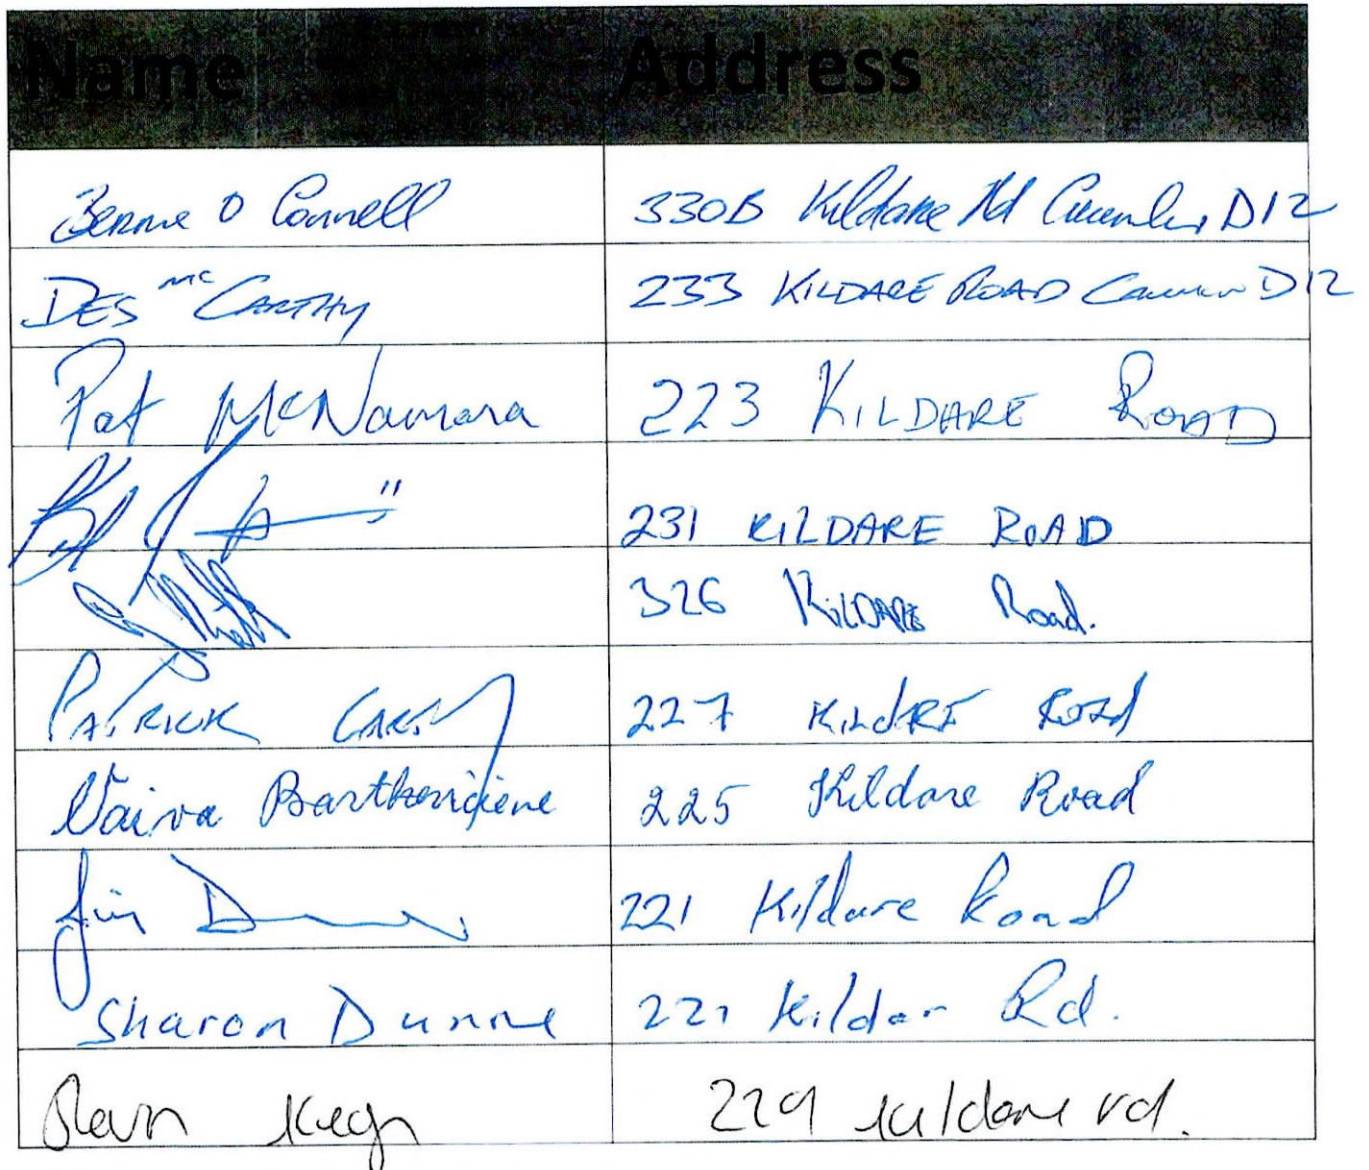 Name Address
Bernie O Connell 330B Kildare Rd Crumlin D12
DES McCARTHY 233 KILDARE ROAD Crumlin D12
Pat McNamara 223 KILDARE ROAD
231 KILDARE ROAD
326 KILDARE Road.
PATRICK CARTY 227 KILdRE ROAd
Vaiva 225 Kildare Road
Jim 221 Kildare Road
Sharon Dunne 221 Kildar Rd.
229 Kildare rd.